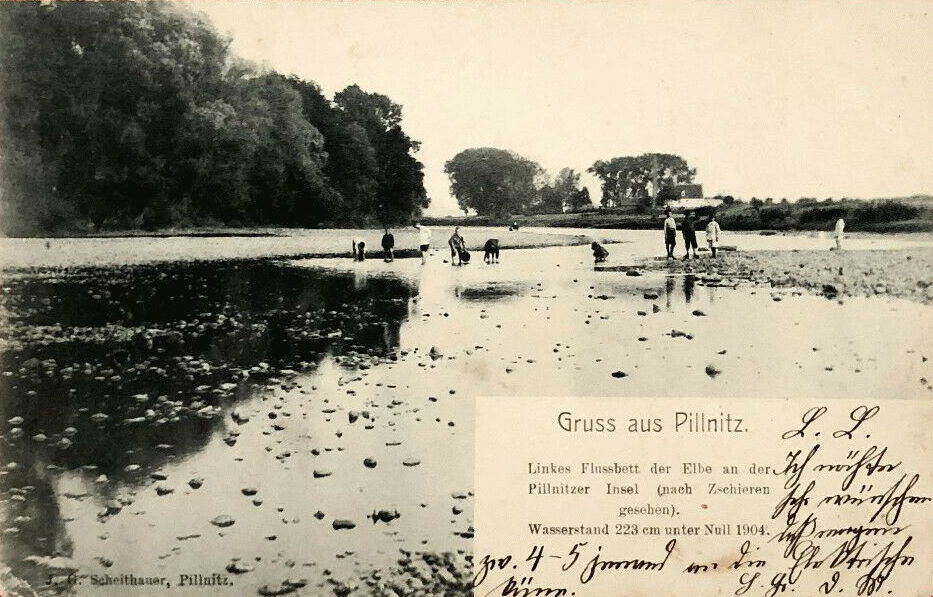 Gruss aus Pillnitz.
Linkes Flussbett der Elbe an der
Pillnitzer Insel (nach Zschieren
gesehen).
Wasserstand 223 cm unter Null 1904.
L. L.
Ich möchte
sehr wünschen
daß morgen
zw. 4-5 jemand an die Elektrische
käme.
J. G. Scheithauer, Pillnitz.